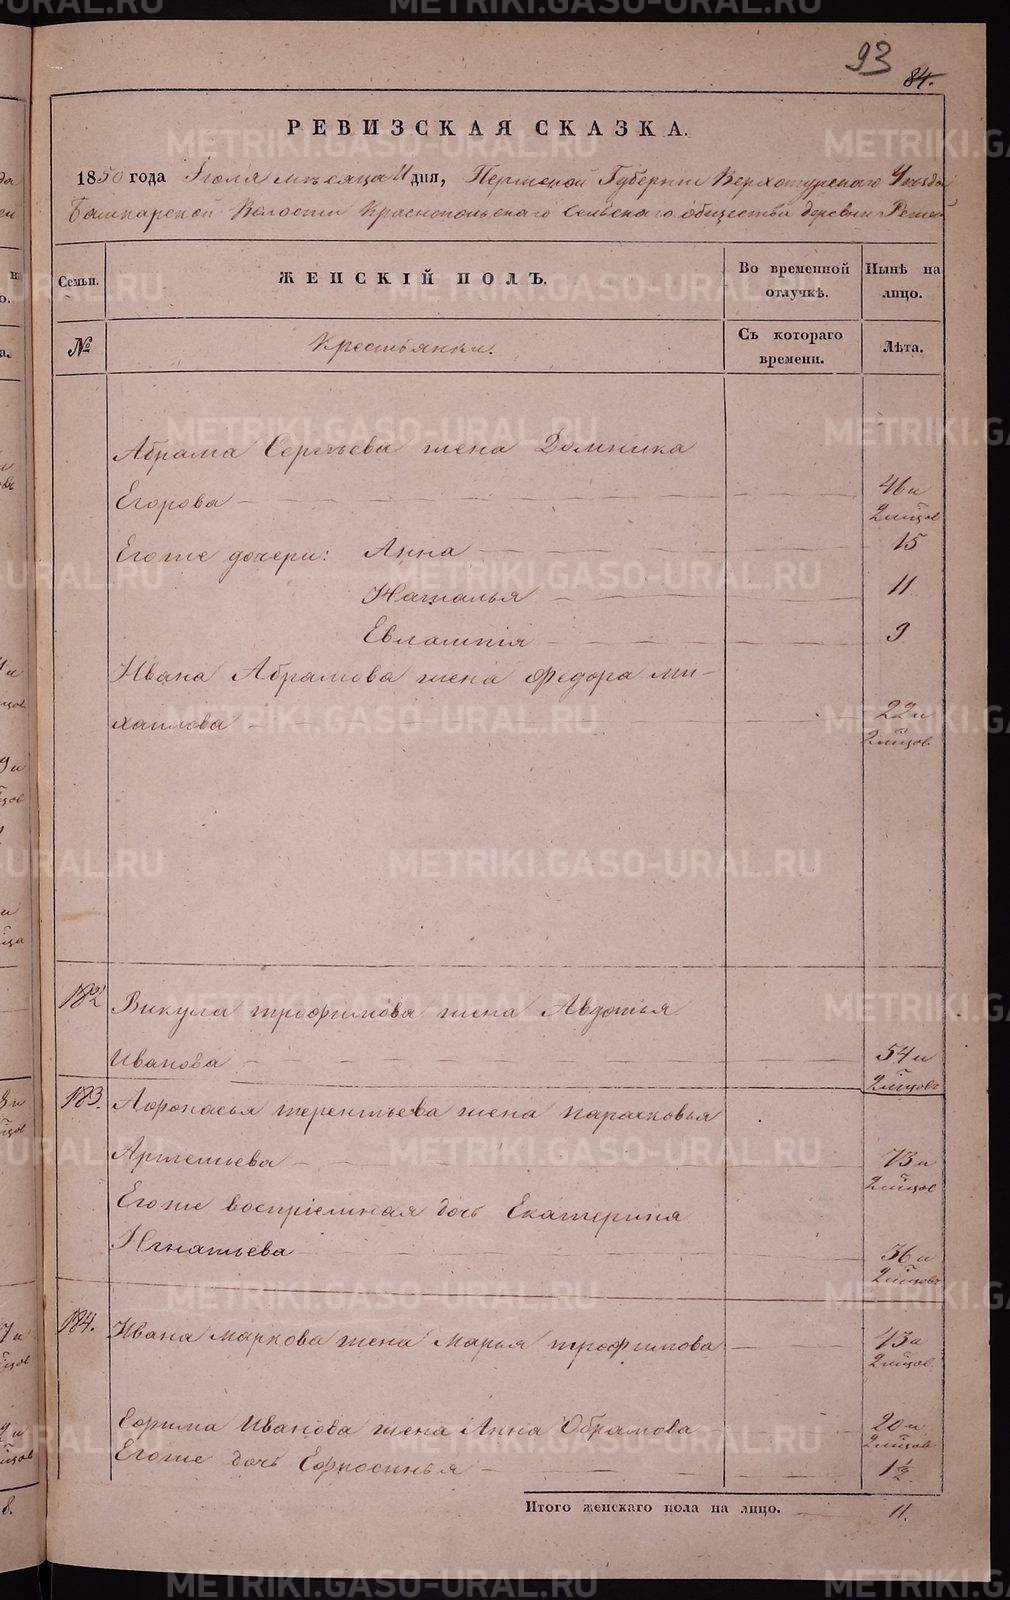 93
84.
РЕВИЗСКАЯ СКАЗКА.
1850 года Іюля мѣсяца 11 дня, Пермской Губерніи Верхотурскаго Уѣзда
Башкарской Волости Краснопольскаго Сельскаго общества деревни
Семьи. ЖЕНСКІЙ ПОЛЪ. Во временной отлучкѣ. Нынѣ на лицо.
№ Крестьянки. Съ котораго времени. Лѣта.
Абрама Сергѣева жена Домника
Егорова 46 и
2 мѣсцов
Егоже дочери: Анна 15
Наталья 11
Евлампія 9
Ивана Абрамова жена Федора Ми-
хаилова 22 и
2 мѣсцов
182 Викула Трофимова жена Авдотья
Иванова 54 и
2 мѣсцовъ
183. Афонасья Терентьева жена Парасковья
Артемьева 73 и
2 мѣсцов
Егоже воспріемная дочь Екатерина
Игнатьева 36 и
2 мѣсцовъ
184. Ивана Маркова жена Марья Трофимова 43 и
2 мѣсцов
Ефима Иванова жена Анна Обрамова 20 и
2 мѣсцов
Егоже дочь Ефросинья 1½
Итого женскаго пола на лицо. 11.
METRIKI.GASO-URAL.RU